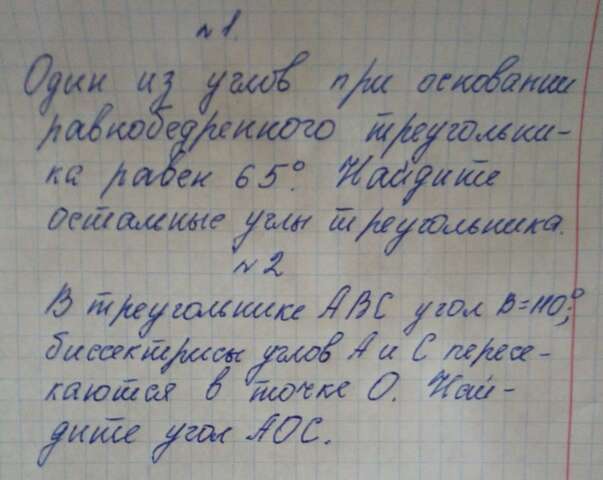 №1.
Один из углов при основании
равнобедренного треугольни-
ка равен 65°. Найдите
остальные углы треугольника.
№2
В треугольнике ABC угол B=110°;
биссектрисы углов A и C пересе-
каются в точке O. Най-
дите угол AOC.